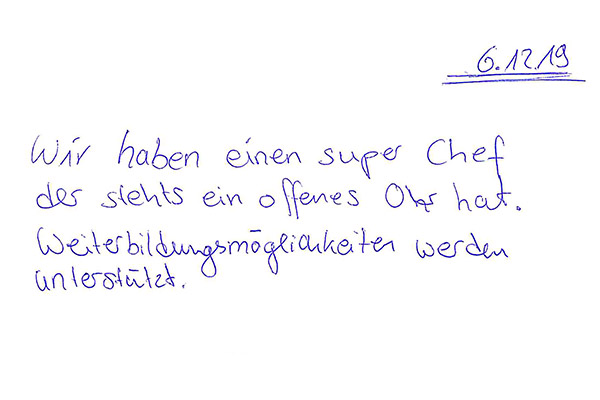 6.12.19
Wir haben einen super Chef
der stehts ein offenes Ohr hat.
Weiterbildungsmöglichkeiten werden
unterstützt.